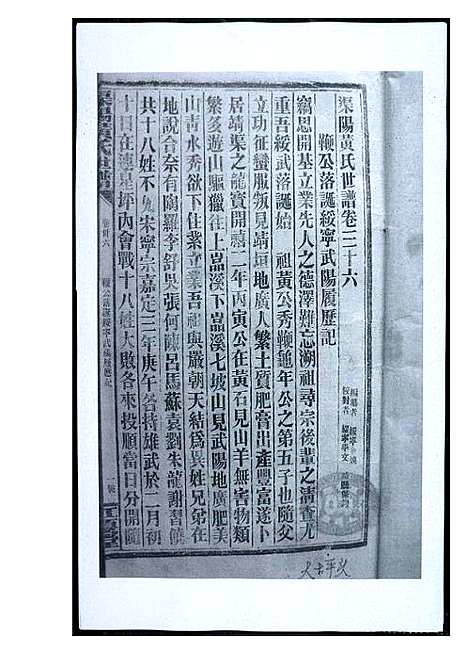 渠陽黃氏世譜卷三十六
鞭公落誕綏寧武陽履歷記
竊思開基立業先人之德澤難忘溯祖尋宗後輩之清查尤
重吾綏武落誕始 祖黃公秀鞭龜年公之第五子也隨父
立功征蠻服叛見靖垣地廣人繁土質肥膏出產豐富遂卜
居靖渠之龍寶開禧二年丙寅公在黃石見山羊無害物類
繁多遊山驅獵往上嵓溪下嵓溪七坡山見武陽地廣肥美
山青水秀欲下住紫立業吾祖與嚴朝天結為異姓兄弟在
地說合奈有陶羅李舒吳張何陳呂馬蘇袁劉朱龍謝習饒
共十八姓不 宋寧宗嘉定三年庚午各持雄武於二月初
十日在連星坪內會戰十八姓大敗各來投順當日分開隨
渠陽黃氏世譜
卷卅六
鞭公落誕綏寧武陽履歷記
江夏堂